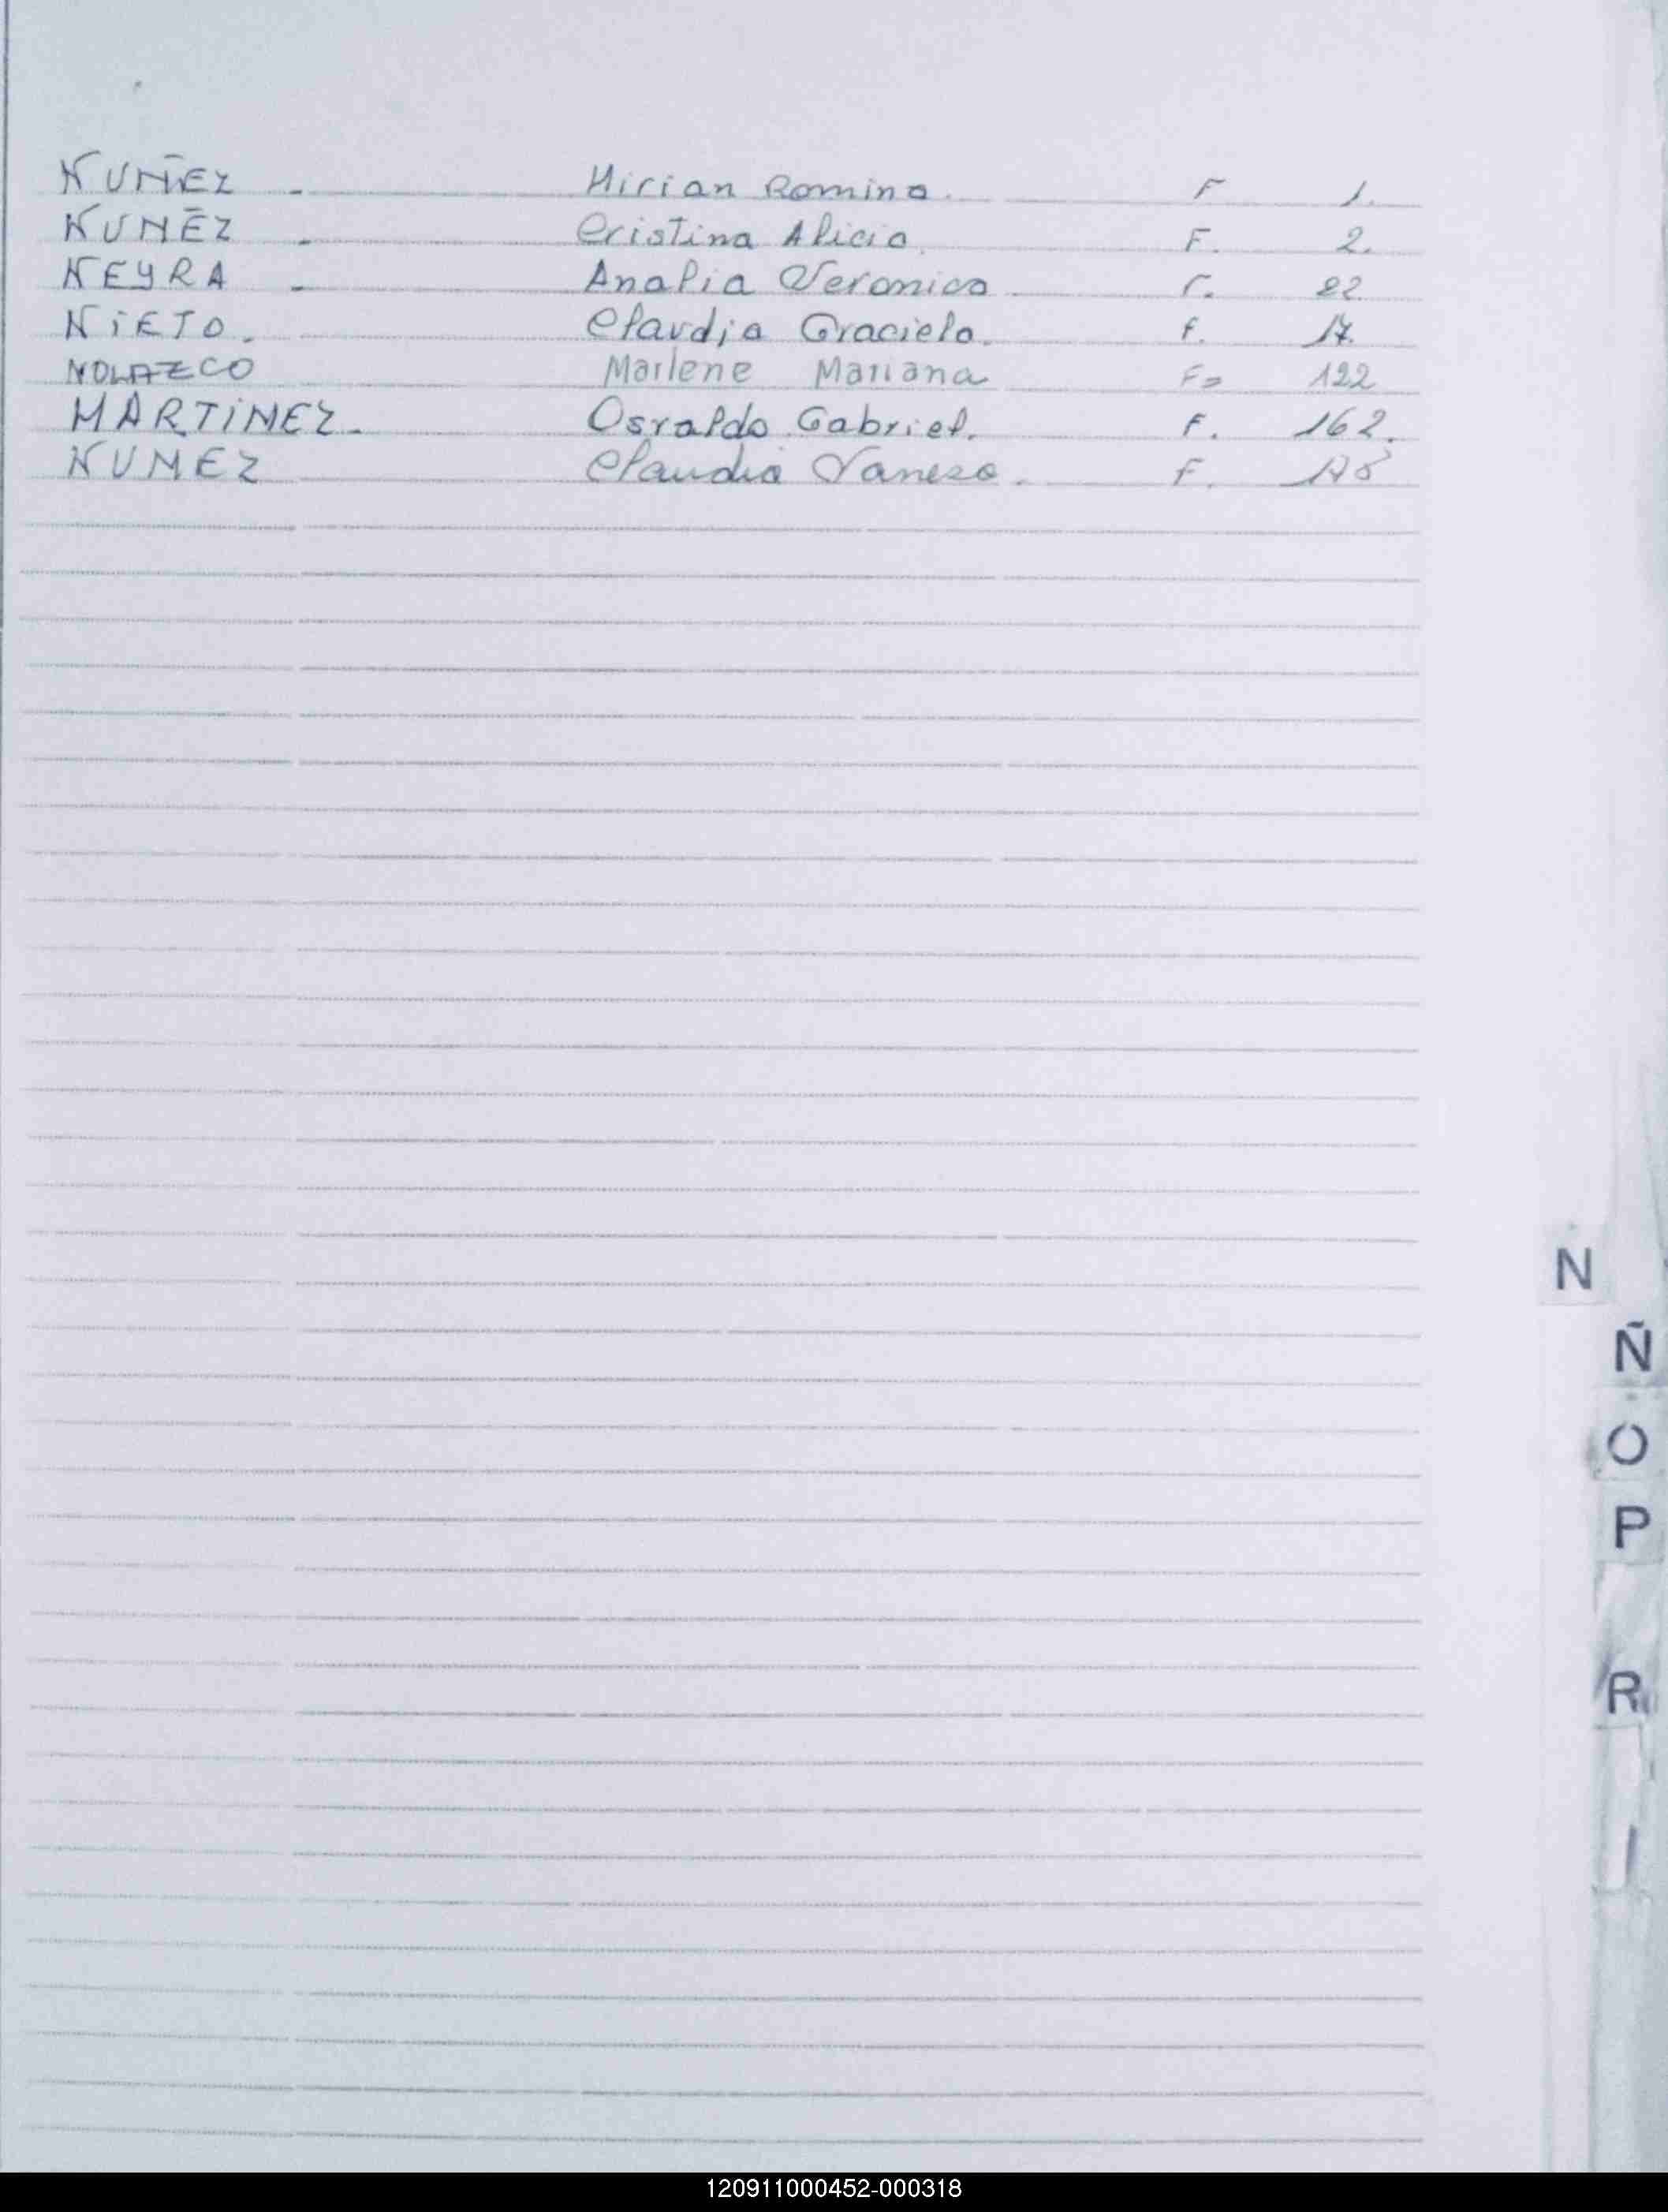 NUÑEZ - Mirian Romina. F 1.
NUÑEZ - Cristina Alicia. F. 2.
NEYRA - Analia Veronica F. 22
NiETO. Claudia Graciela. F. 17.
NOLAZCO Marlene Mariana Fº 122
MARTiNEZ. Osvaldo Gabriel. F. 162.
NUNEZ Claudia Vanesa. F.
N
Ñ
O
P
R
120911000452-000318